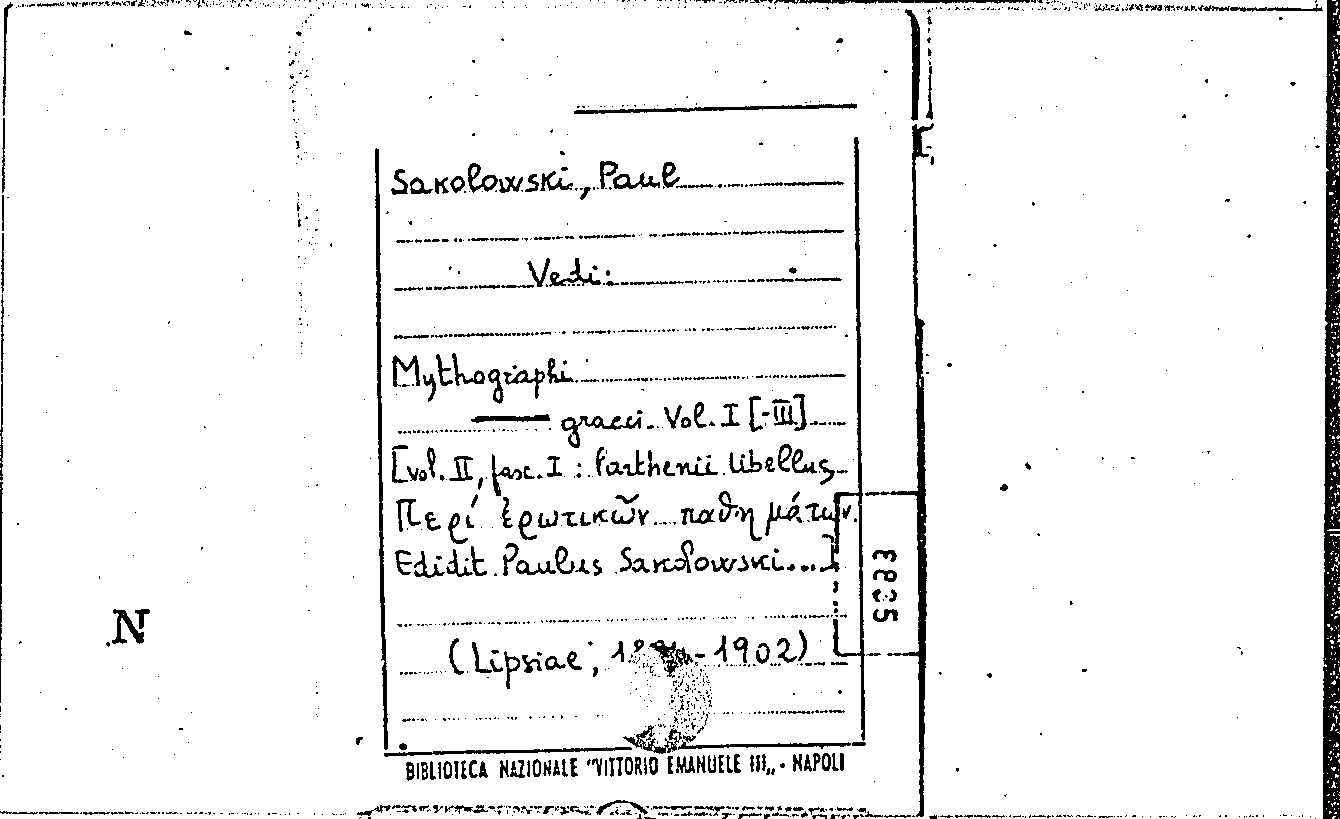 Sakolowski, Paul
Vedi:
Mythographi
—— graeci. Vol. I [-III]
[vol. II, fasc. I : Parthenii libellus
Περί ἐρωτικῶν παθημάτων.
Edidit Paulus Sakolowski...]
3835
N
(Lipsiae, - 1902)
BIBLIOTECA NAZIONALE "VITTORIO EMANUELE III„ - NAPOLI